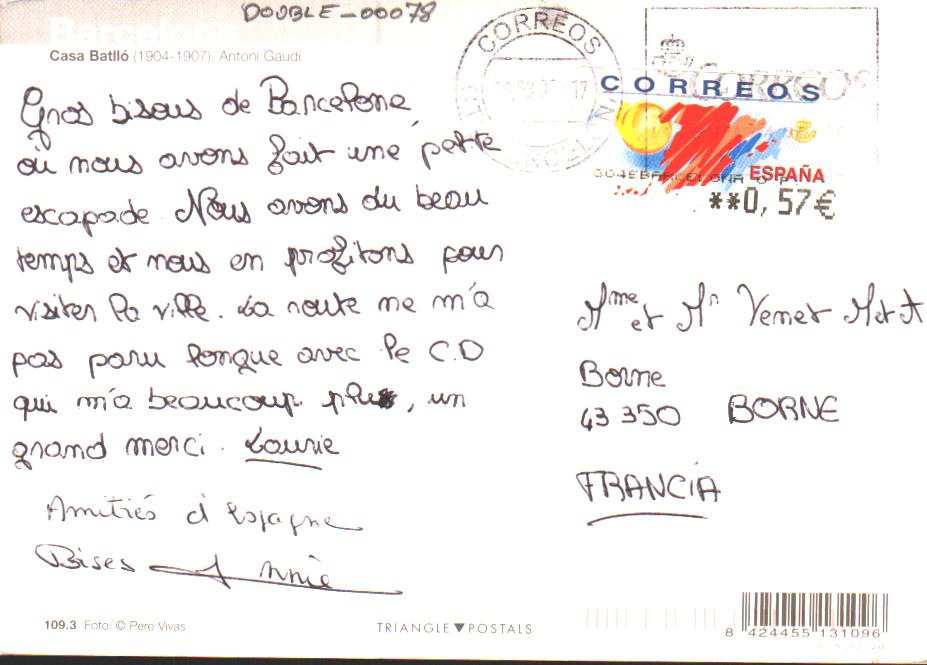 DOUBLE-00078
Barcelona
Casa Batlló (1904-1907). Antoni Gaudí
Gros bisous de Barcelone,
où nous avons fait une petite
escapade. Nous avons du beau
temps et nous en profitons pour
visiter la ville. La route ne m'a
pas paru longue avec le C.D
qui m'a beaucoup plu, un
grand merci. Laurie
Amitiés d'Espagne
Bises Annie
109.3 Foto: © Pere Vivas
TRIANGLE▼POSTALS
CORREOS
CORREOS
CORREOS
ESPAÑA
**0,57€
Mme et Mr Vernet M et A
Borne
43 350 BORNE
FRANCIA
8 424455 131096